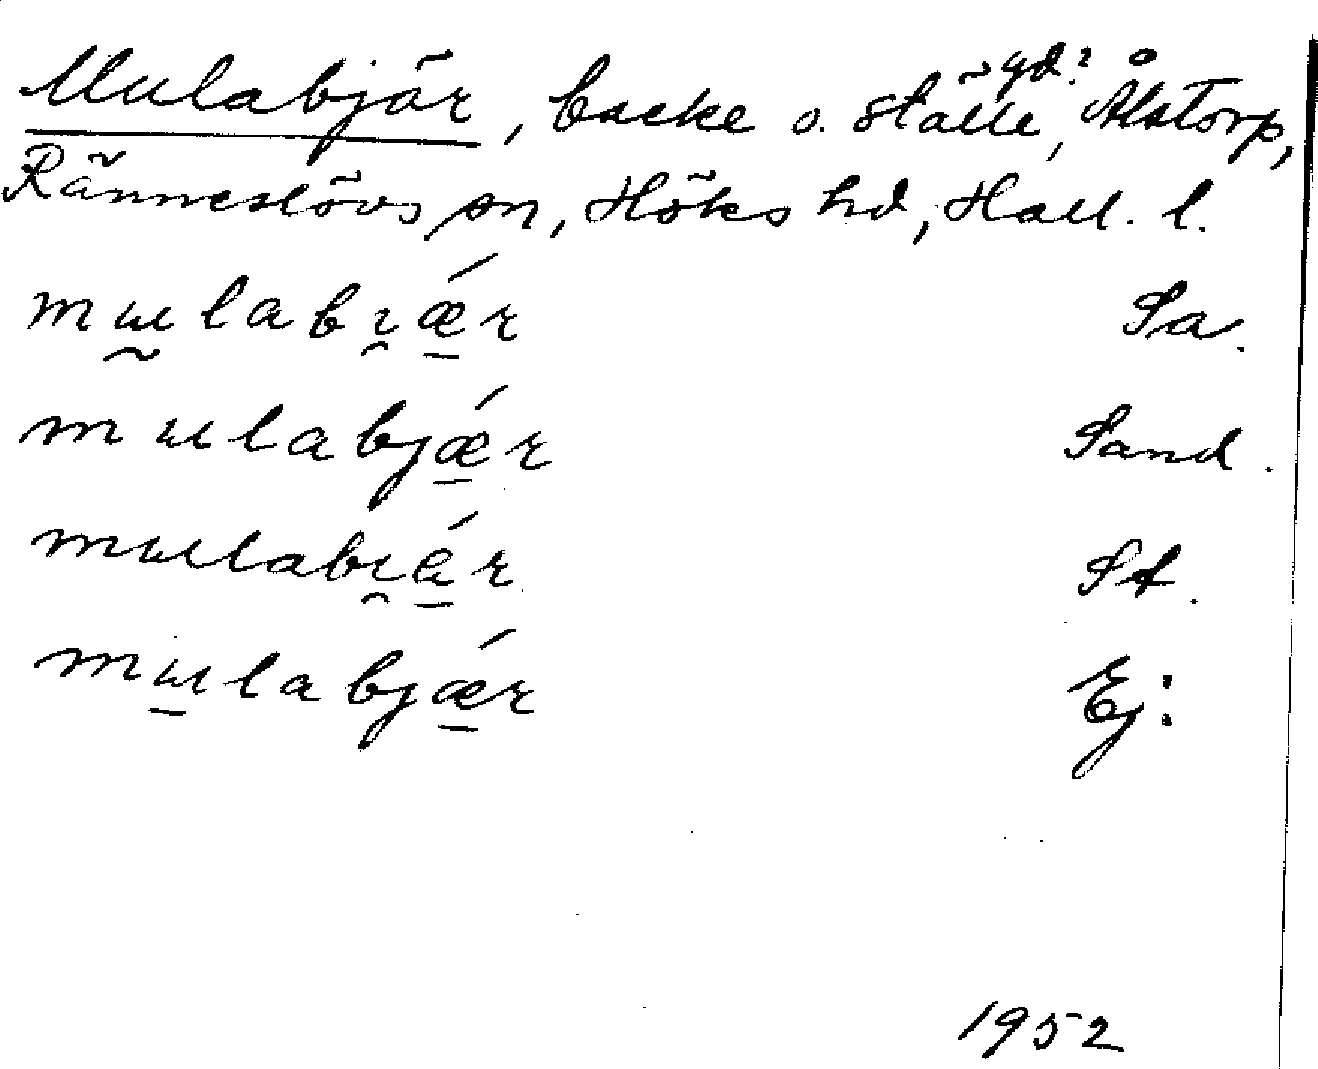 Mulabjär, backe o. ställe, gd? Ålstorp,
Ränneslövs sn, Höks hd, Hall. l.
mɯ̰labɿ̯ǽ̠r Sa.
mɯlabjǽ̠r Sand.
mɯlabɿ̯ǽ̠r St.
mɯ̠labjǽ̠r Ej:
1952